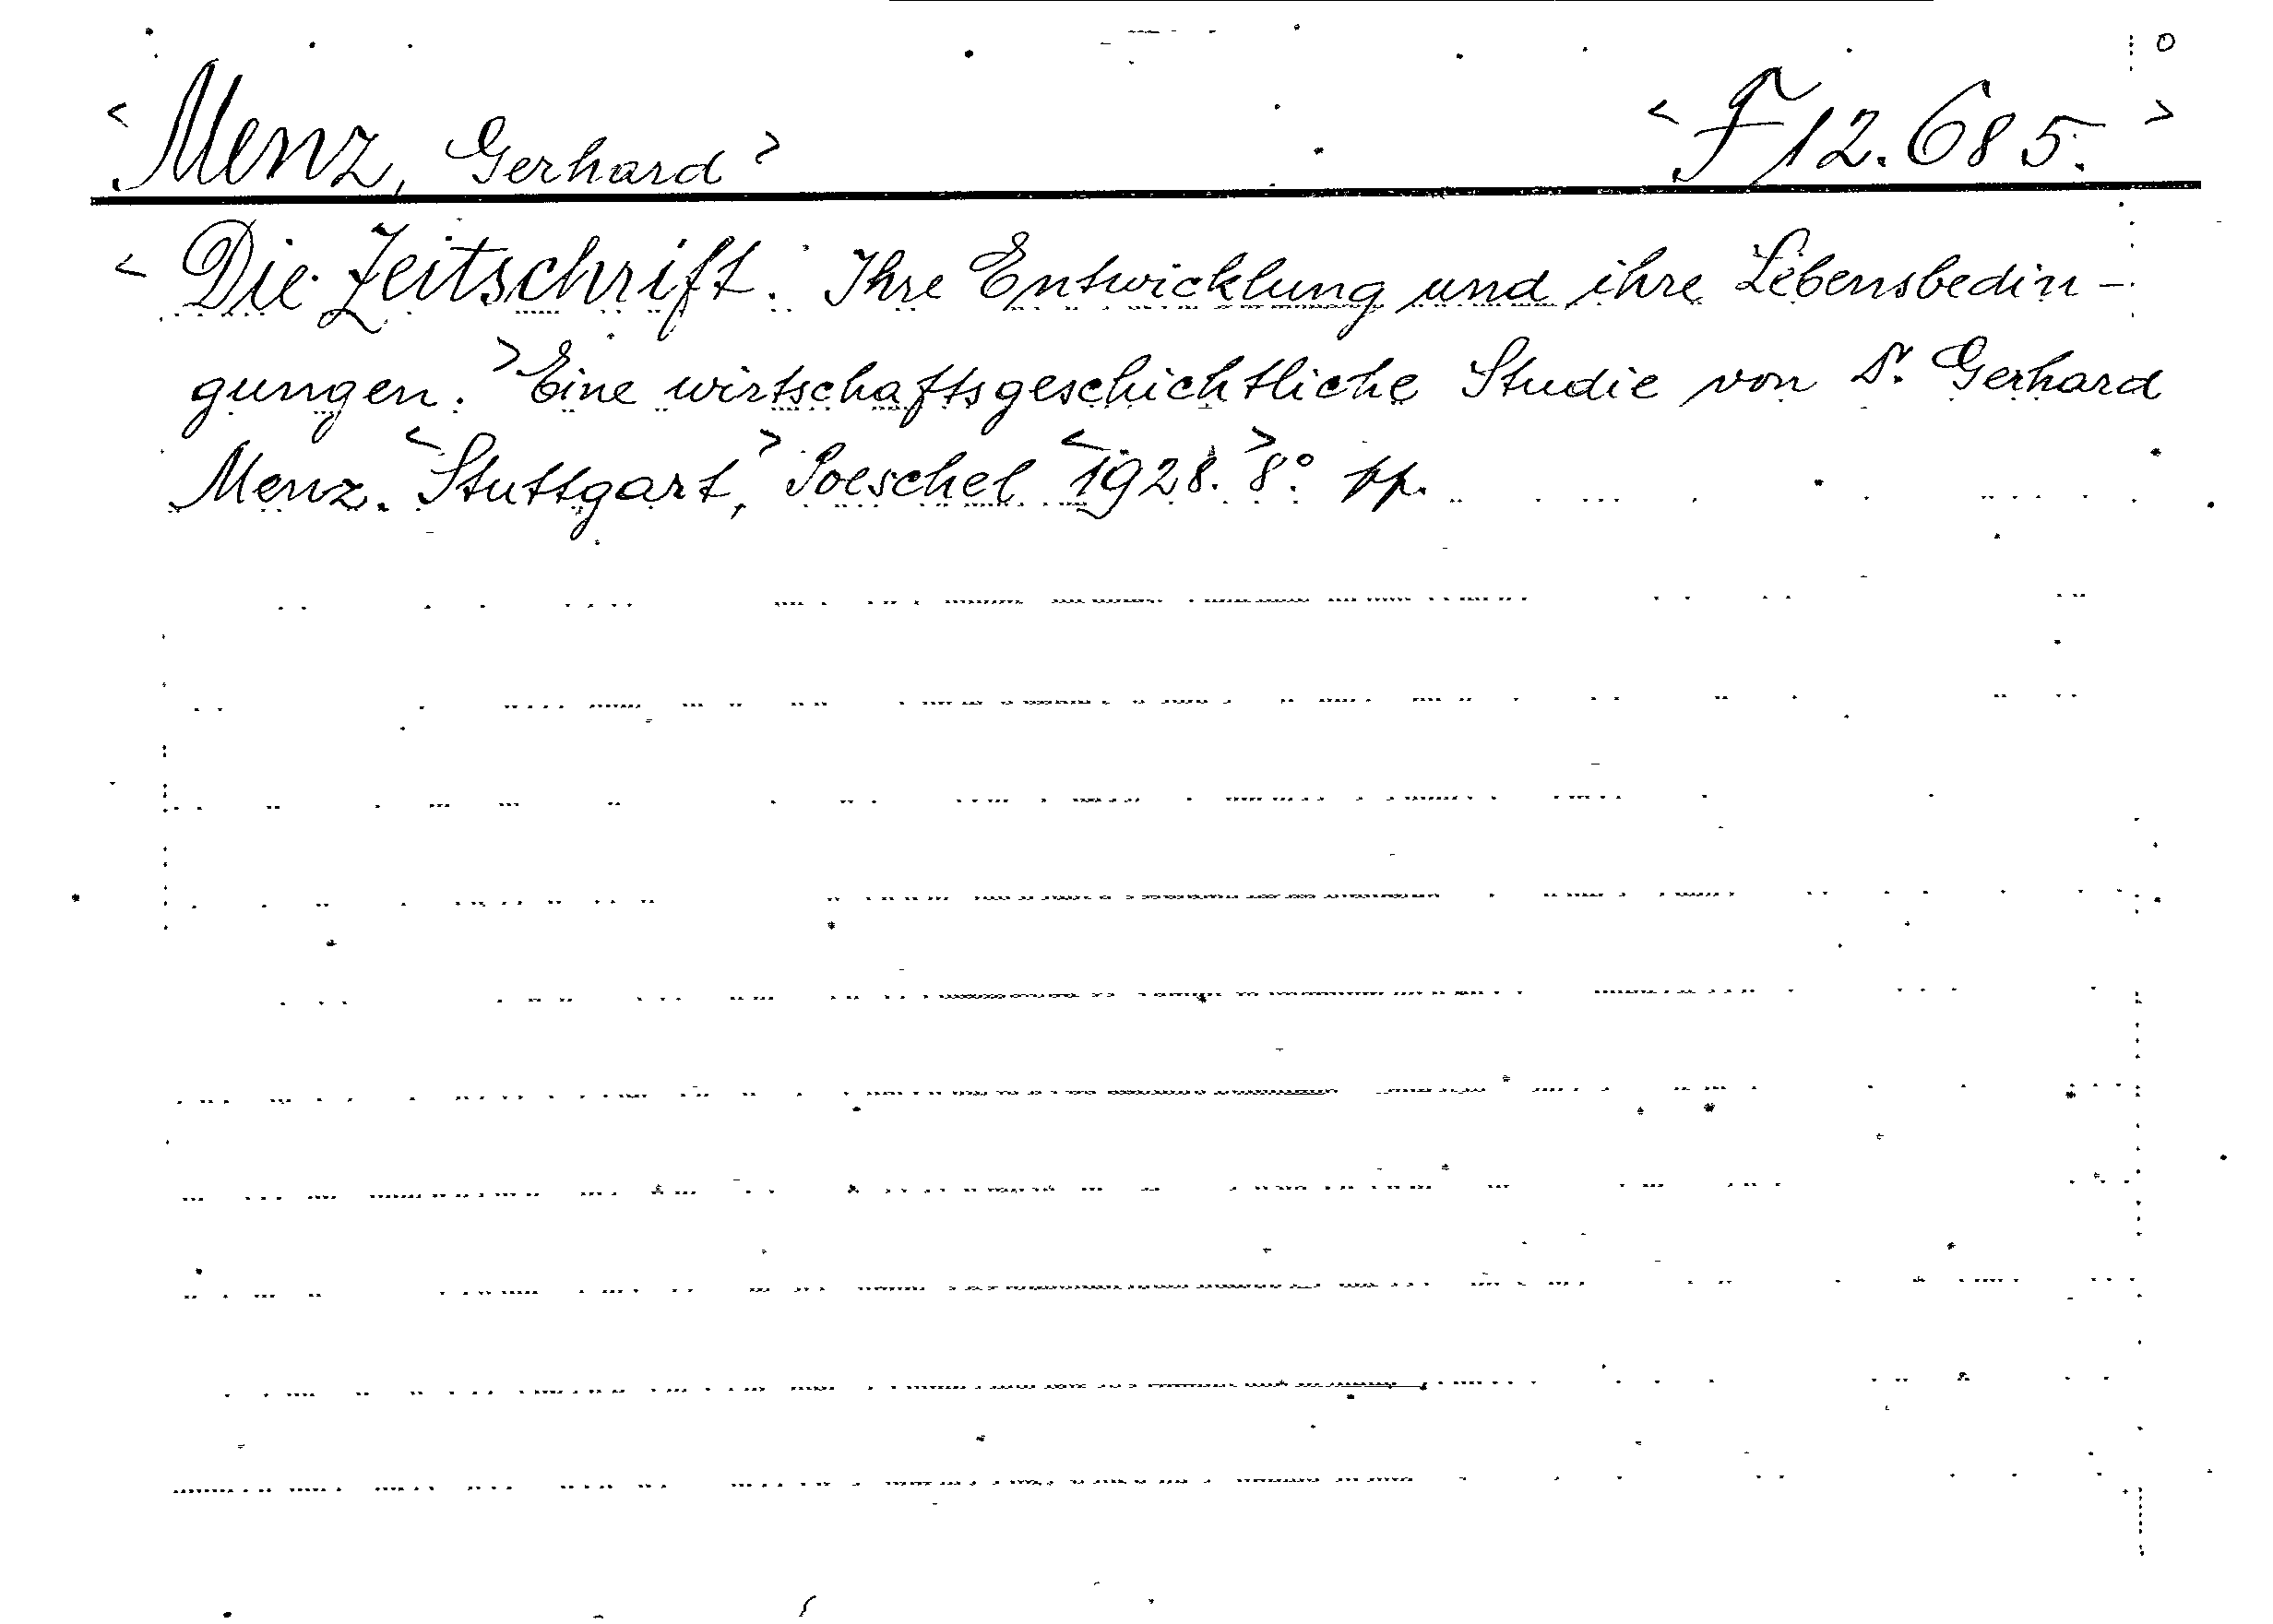 <Menz, Gerhard> <F 12.685.>
<Die Zeitschrift. Ihre Entwicklung und ihre Lebensbedin-
gungen.> Eine wirtschaftsgeschichtliche Studie von Dr. Gerhard
Menz. <Stuttgart,> Poeschel <1928.> 8° pp.